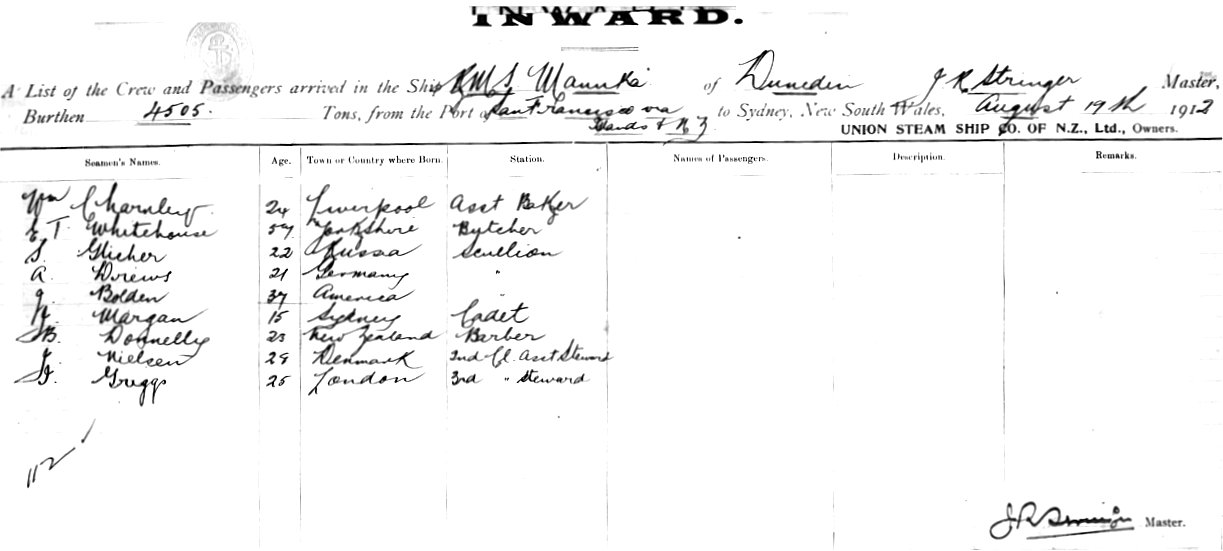 INWARD.
A List of the Crew and Passengers arrived in the Ship RMS Manuka of Dunedin J R Stringer Master,
Burthen 4505. Tons, from the Port of San Francisco via Islands & N Z to Sydney, New South Wales, August 19th 1912
UNION STEAM SHIP CO. OF N.Z., Ltd., Owners.
Seamen's Names. Age. Town or Country where Born. Station. Names of Passengers. Description. Remarks.
Wm Charnley 24 Liverpool Asst Baker
E T Whitehouse 57 Yorkshire Butcher
S. Glicher 22 Russia Scullion
A. Driews 21 Germany "
J. Bolden 37 America "
Margan 15 Sydney Cadet
B. Donnelly 23 New Zealand Barber
Nielsen 28 Denmark 2nd Cl. Asst Steward
Griggs 25 London 3rd " Steward
112
J R Stringer Master.